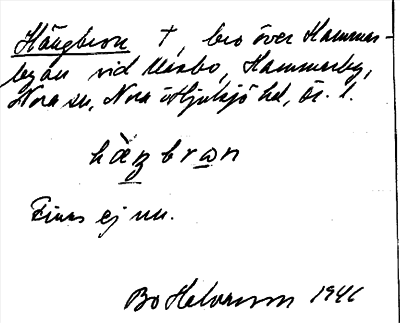 Hängbron †, bro över Hammar-
byån vid Masbo, Hammarby,
Nora sn, Nora o Hjulsjö hd, ör. l.
hàŋbron
Finns ej nu.
Bo Halvarsson 1946